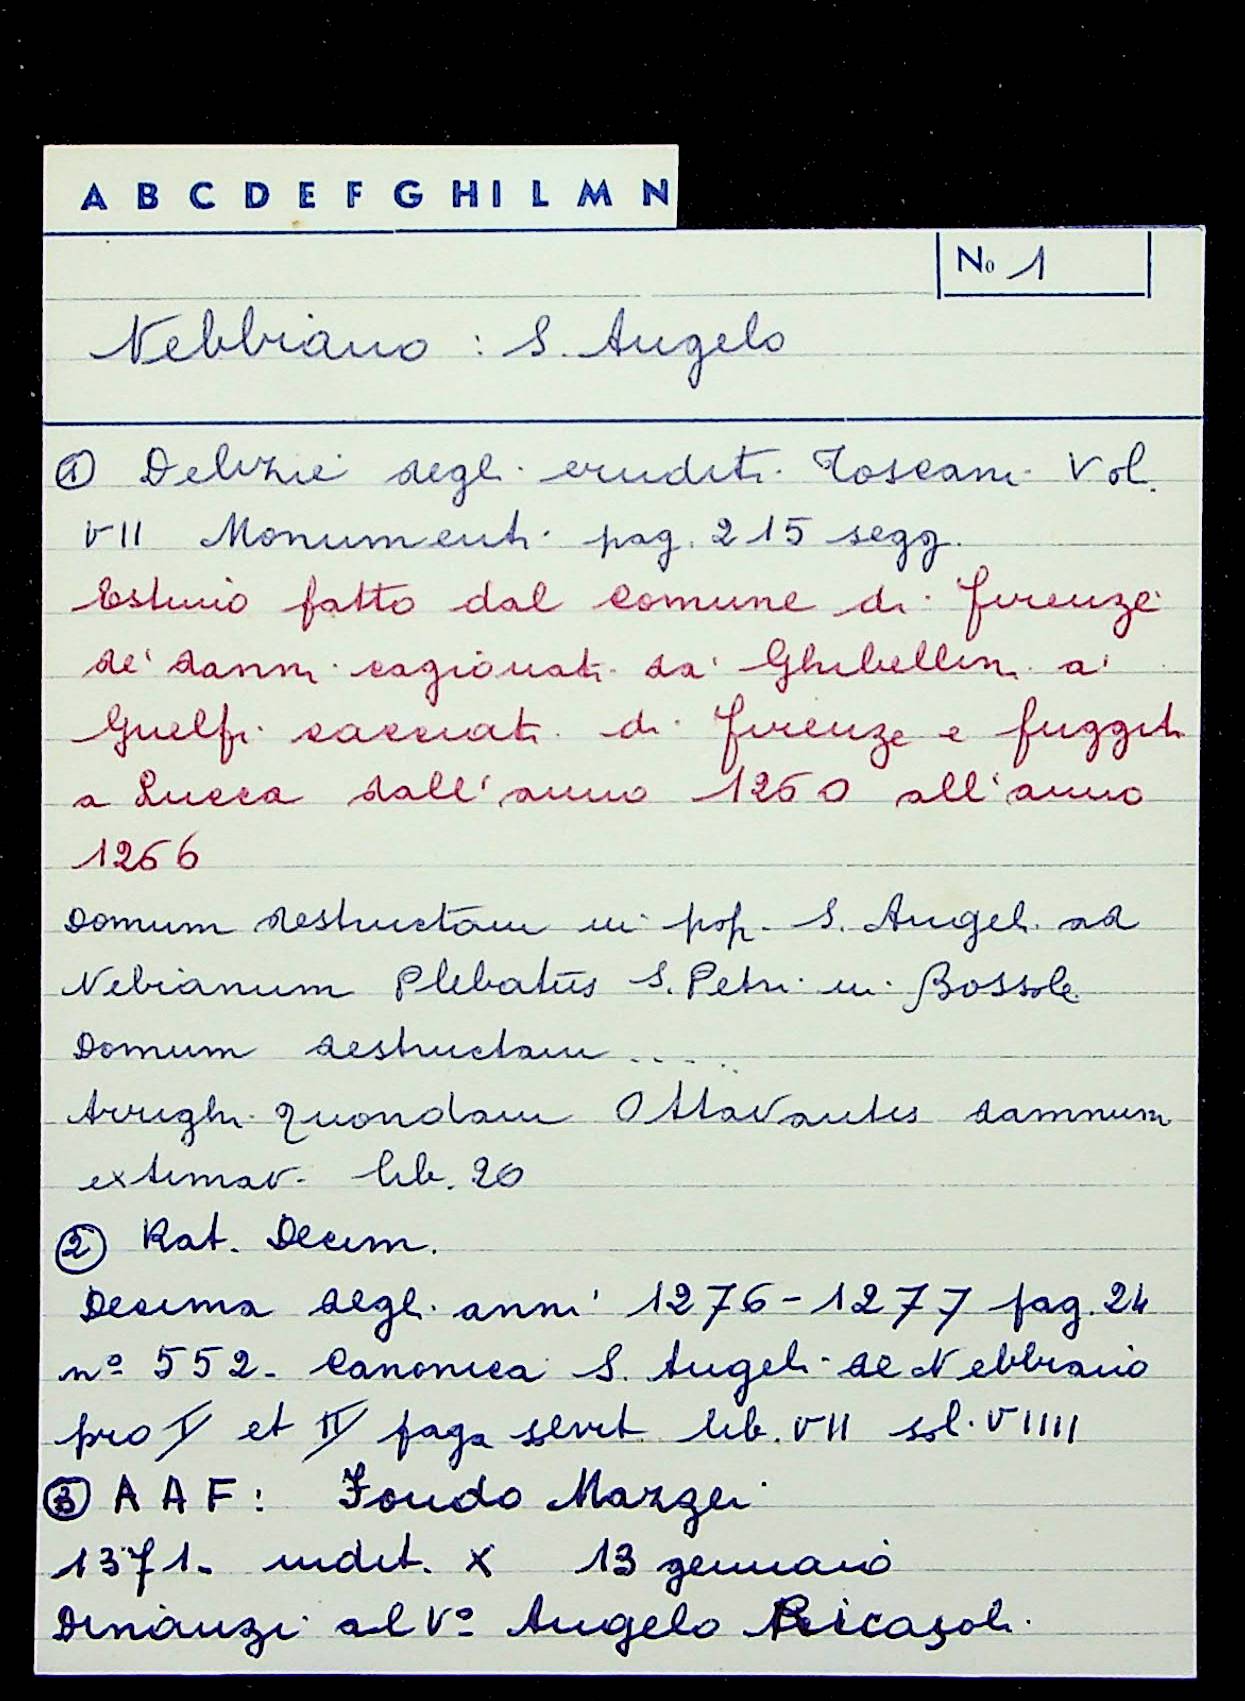 A B C D E F G H I L M N
No 1
Nebbiano : S. Angelo
① Delizie degli eruditi Toscani Vol.
VII Monumenti pag. 215 segg.
Estimo fatto dal Comune di Firenze
de' danni cagionati da' Ghibellini a'
Guelfi cacciati di Firenze e fuggiti
a Lucca dall'anno 1260 all'anno
1266
Domum destructam in pop. S. Angeli ad
Nebianum Plebatus S. Petri in Bossole
Domum destructam .....
Arrighi quondam Ottavantis damnum
extimav. lib. 20
② Rat. Decim.
Decima degli anni 1276-1277 pag. 24
nº 552. Canonica S. Angeli de Nebbiano
pro I et II paga solvit lib. VII sol. VIIII
③ A A F : Fondo Mazzei
1371. indit. X 13 gennaio
Dinanzi al Vº Angelo Ricasoli